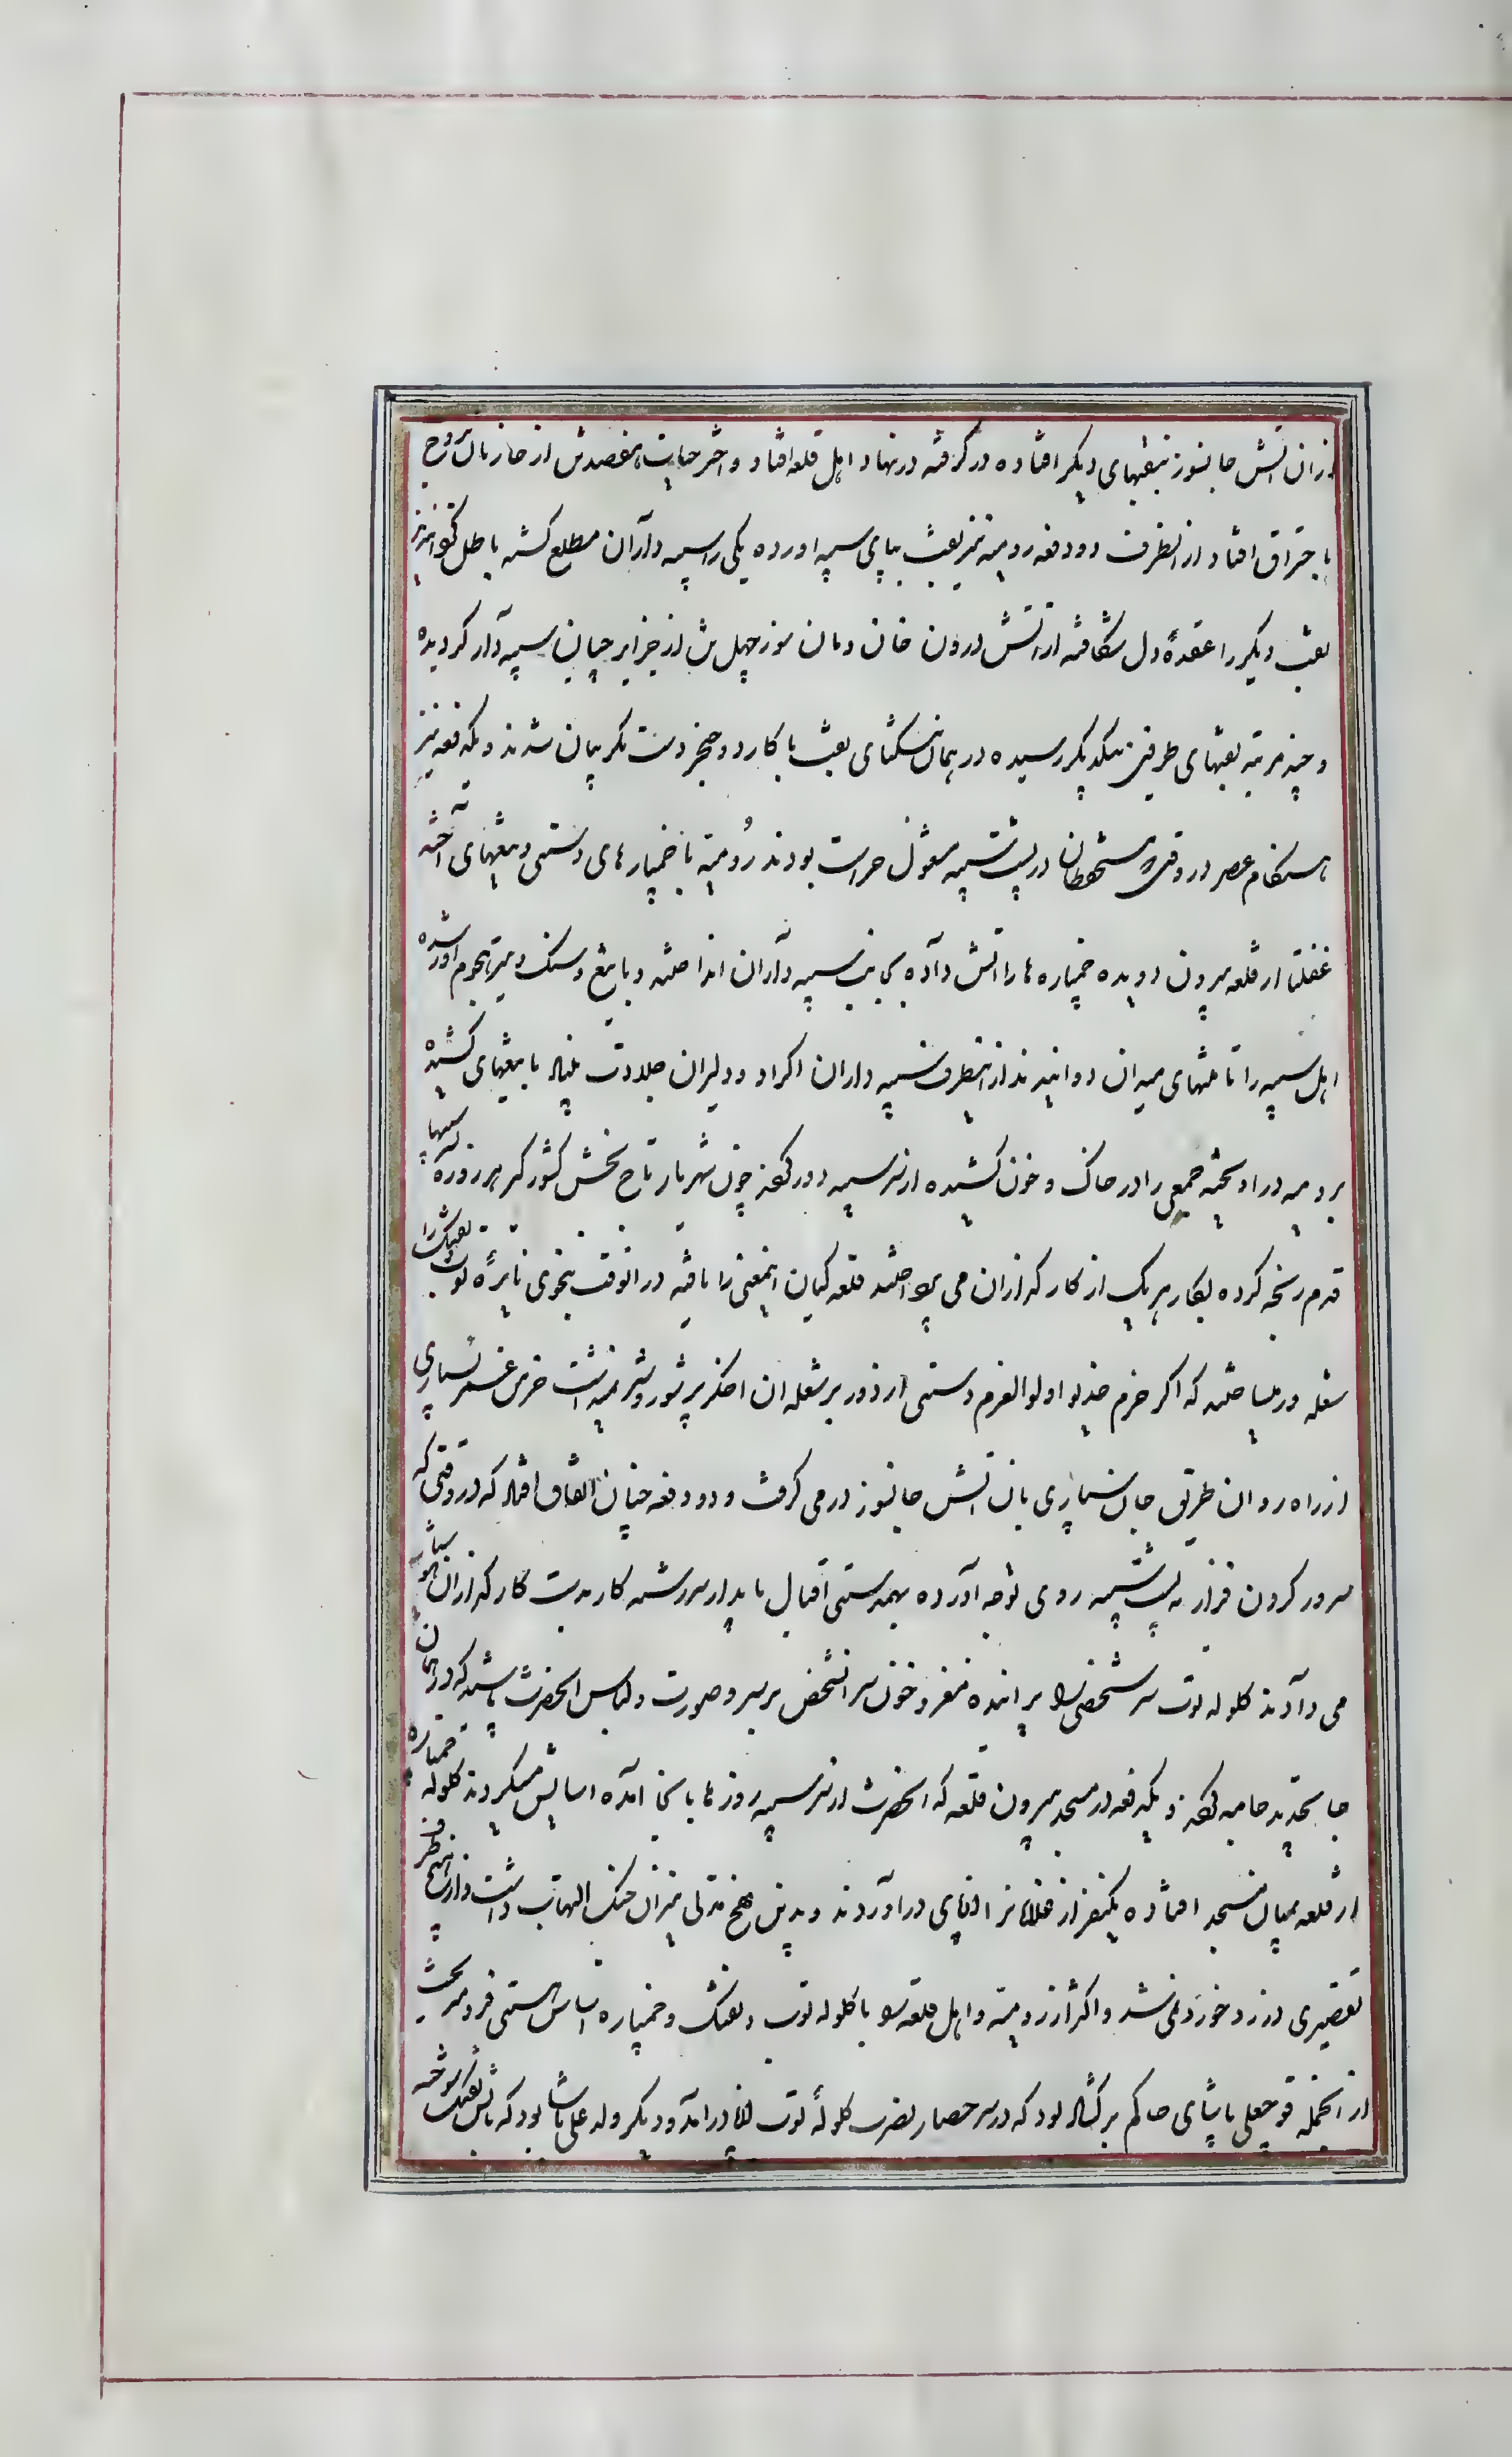 از ان آتش جانسوز بنقبهای دیگر افتاده در گرفته در نهاد اهل قلعه افتاد و اختر حیات هفتصد تن از خازنان بروج
باحتراق افتاد از انطرف دو دفعه رومیه نیز نقب بپای سیبه اورده یکی را سیبه داران مطلع کشته باطل کردند
نقب دیگر را عقدهٔ دل شکافته از آتش درون خان و مان سوز چهل تن از جزایرچیان سیبه دار کردیده
و چند مرتبه نقبهای طرفین بیکدیگر رسیده در همان تنگنای نقب با کارد و خنجر دست بگریبان شدند و یکدفعه نیز
هنکام عصر در وقتی که مستحفظان در پشت سیبه مشغول حراست بودند رومیه با خمپاره های دستی و تیغهای آخته
غفلتا از قلعه بیرون دویده خمپاره ها را آتش داده بجانب سیبه داران انداخته و با تیغ و سنک و تیر هجوم اور شده
اهل سیبه را تا میدان دوانیدند از انطرف سیبه داران اکراد و دلیران جلادت بنیاد با تیغهای کشیده
برومیه در اویخته جمعی را در خاک و خون کشیده از سر سیبه دور کردند چون شهریار تاج بخش کشور کیر هر روزه بسیبها
قدم رنجه کرده بکار هر یک از کارکذاران می پرداختند قلعه کیان اینمعنی را یافته در انوقت بنحوی نایرهٔ توپ و تفنک را
شعله ور میساختند که اکر حزم خدیو اولوالعزم دستی از دور بر شعله ان اخکر پر شور و شر میداشت خرمن عمر بسیاری
از راه روان طریق جان سپاری بان آتش جانسوز در می کرفت و دو دفعه چنان اتفاق افتاد که در وقتی که
سرور کردون فراز به پشت سیبه روی توجه اورده بهمدستی اقبال پایدار سررشته کار بدست کارکذاران
می دادند کلوله توپ سر شخصی را پرانیده مغز و خون سر انشخص بر سر و صورت و لباس انحضرت پاشید که در همان
جا تجدید جامه کردند و یکدفعه در مسجد بیرون قلعه که انحضرت از سر سیبه روزها بانجا آمده اسایش میکردند کلوله خمپاره
از قلعه بمیان مسجد افتاده یکنفر از غلامان را از پای در اورد و بدین نهج مدتی نیران جنک التهاب داشت و از اینطرف
تقصیری در زد و خورد نمی شد و اکثر از رومیه و اهل قلعه را با کلوله توپ و تفنک و خمپاره اساس هستی فرو میریخت
از انجمله قوجعلی پاشای حاکم بود که در سر حصار بضرب کلوله توپ از پا در امد و دیکر ولد علی پاشا بود که باتش تفنک سوخته